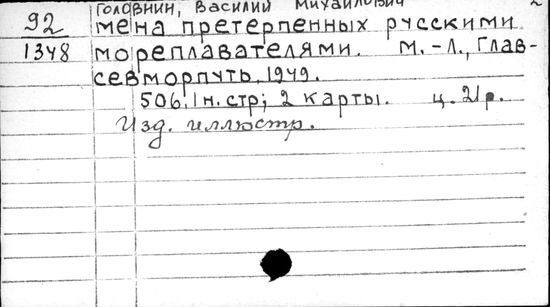 Головнин, Василий Михайлович 2
92 мена претерпенных русскими
1348 мореплавателями. М.-Л., Глав-
севморпуть, 1949.
506, 1 н. стр; 2 карты. ц. 21р.
Изд. иллюстр.